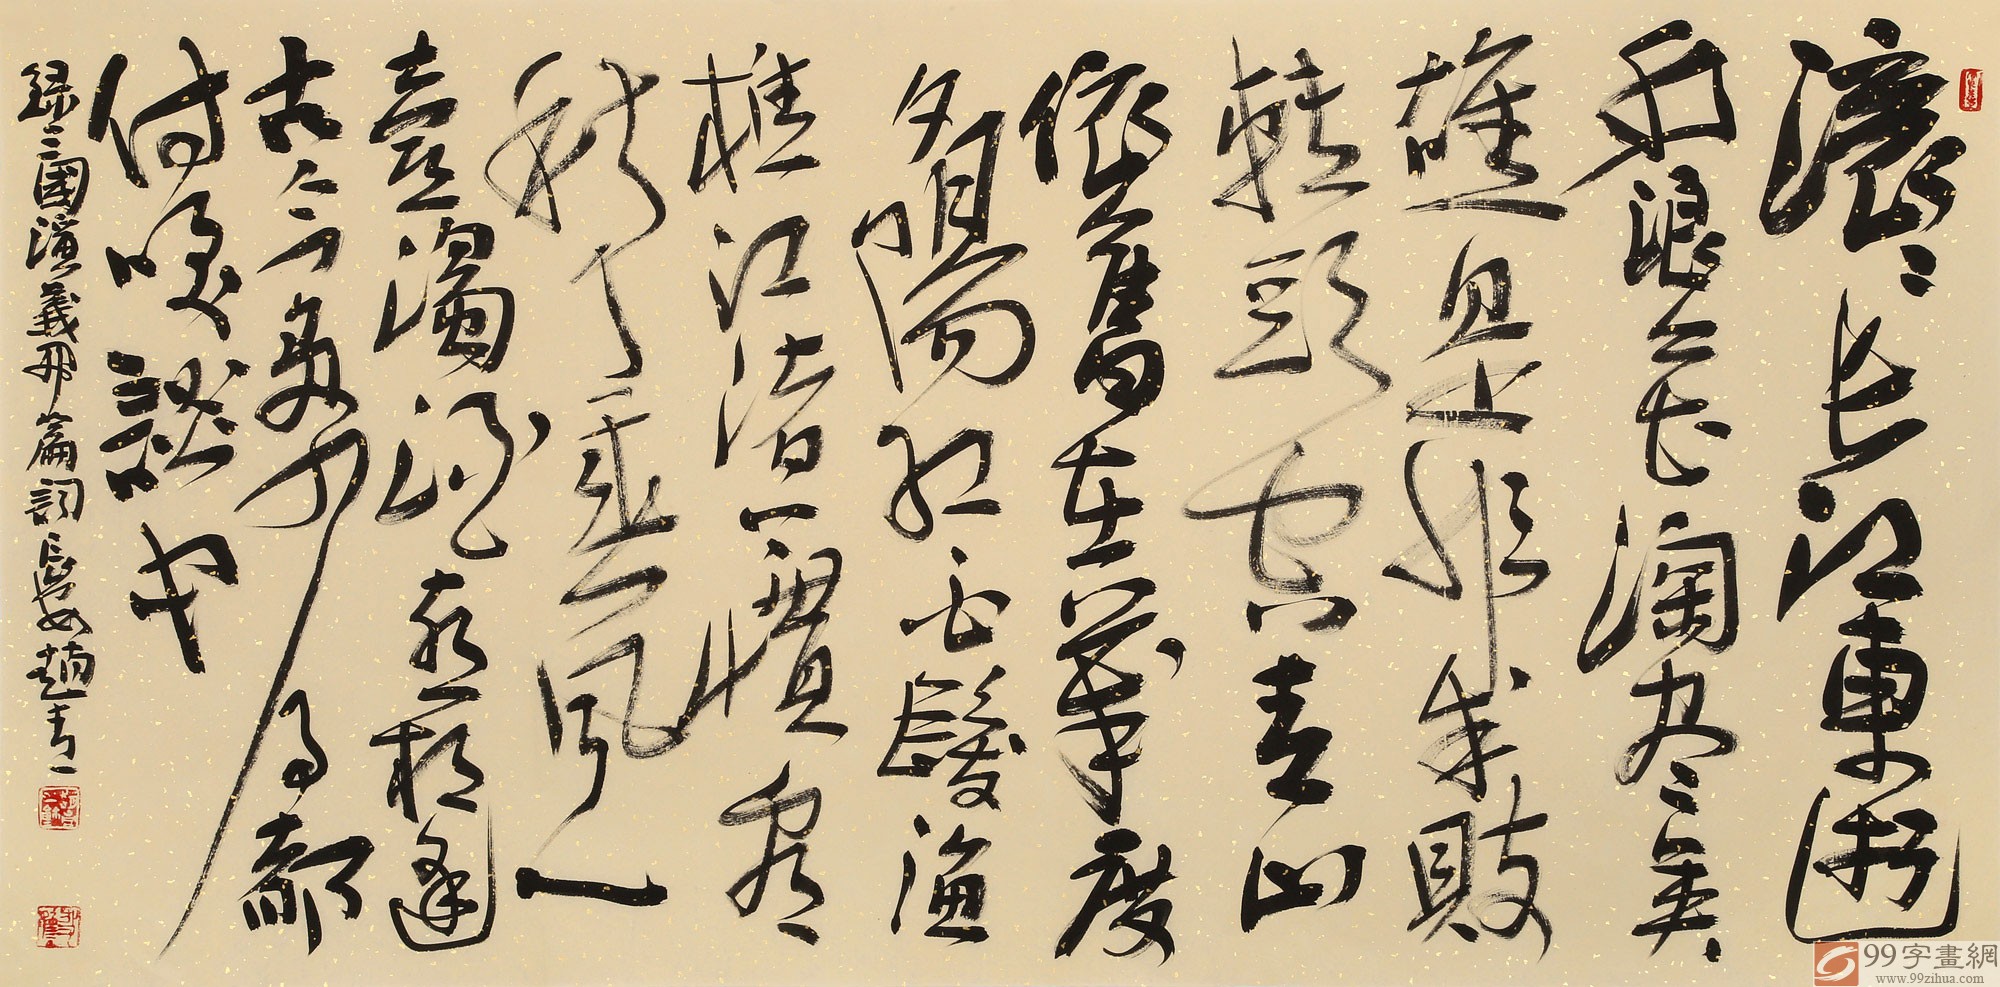 滚滚长江東逝
水浪花淘尽英
雄是非成敗
轉頭空青山
依舊在幾度
夕陽红白髮漁
樵江渚上慣看
秋月春風一
壺濁酒喜相逢
古今多少事都
付笑談中
録三國演義開篇詞長安趙青
99字畫網
www.99zihua.com